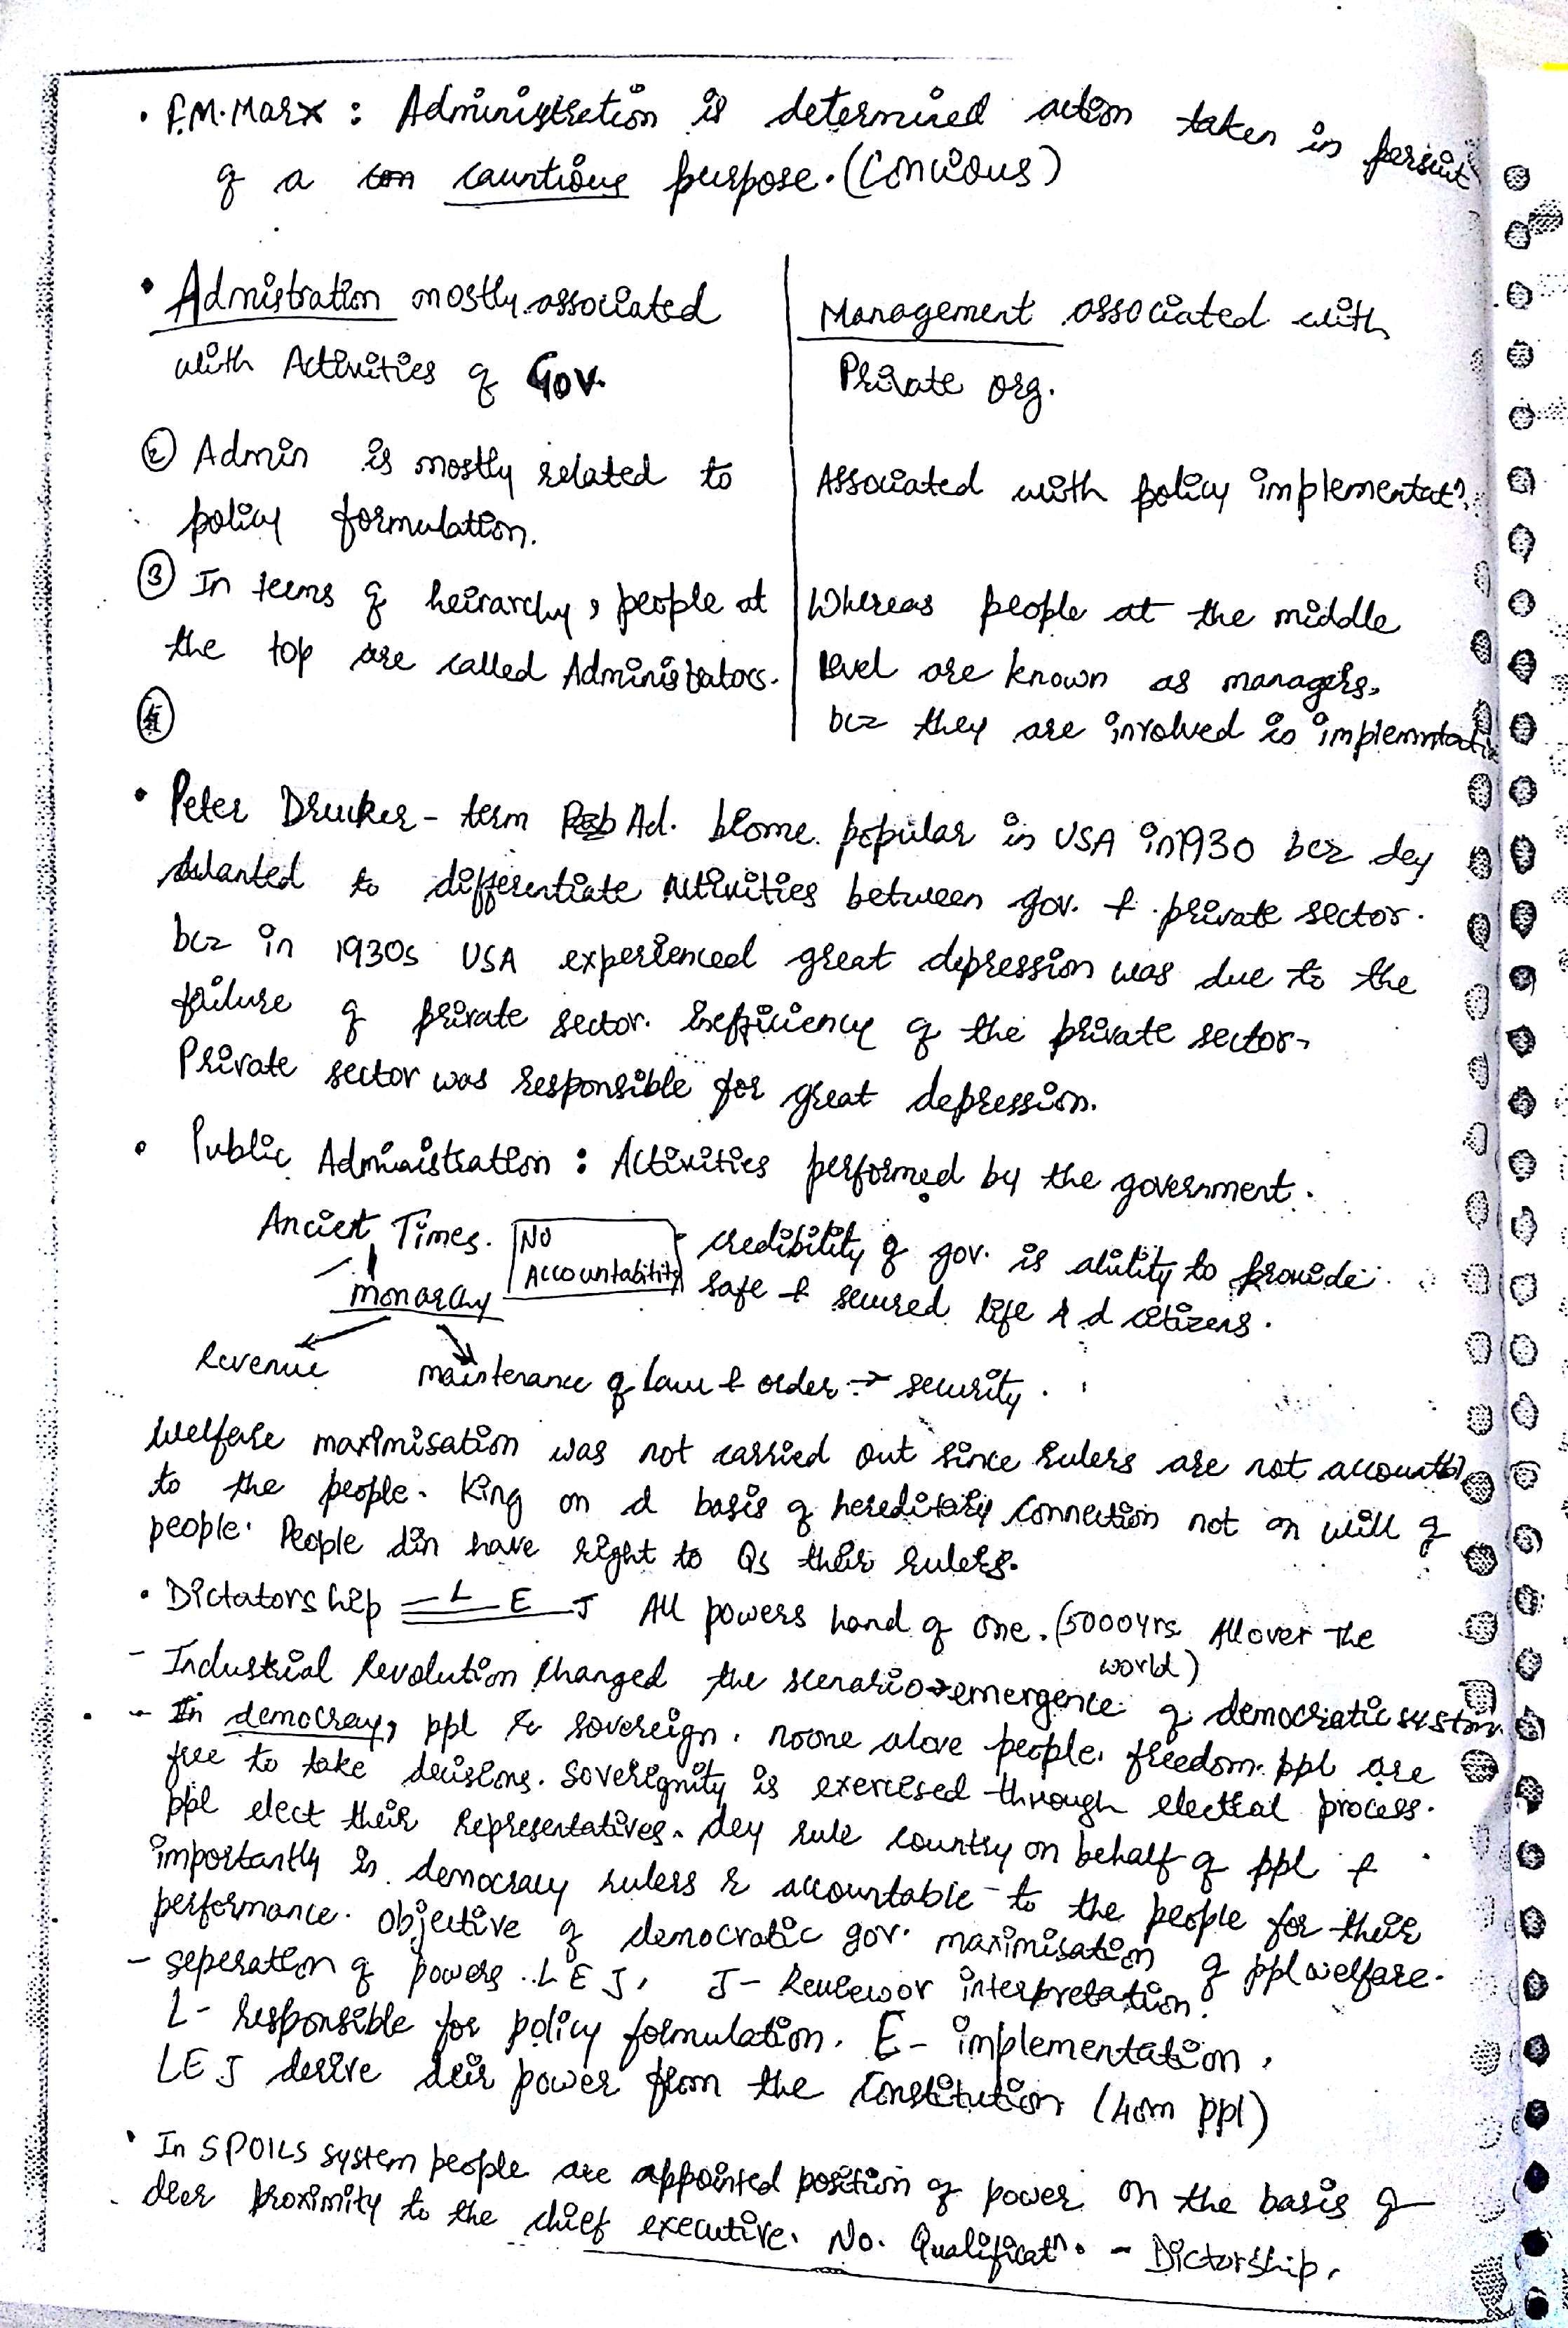 • F.M. Marx : Administration is determined action taken in persuit
of a con cauntious purpose. (Concious)
• Admistration mostly associated
with Activities of Gov.
Management associated with
Private org.
② Admin is mostly related to
policy formulation.
Associated with policy implementatn.
③ In terms of heirarchy, people at
the top are called Administrators.
Whereas people at the middle
level are known as managers.
bcz they are involved in implemntatin
④
• Peter Drucker - term Pub Ad. bcome popular in USA in 1930 bcz dey
wanted to differentiate activities between gov. & private sector.
bcz in 1930s USA experienced great depression was due to the
failure of private sector. inefficiency of the private sector.
Private sector was responsible for great depression.
• Public Administration : Activities performed by the government.
Ancient Times.
No
Accountability
credibility of gov. is ability to provide
safe & secured life 4 d citizens.
monarchy
Revenue
maintenance of law & order → security.
Welfare maximisation was not carried out since rulers are not accountbl
to the people. King on d basis of hereditary connection not on will of
people. People din have right to Qs their rulers.
• Dictatorship = L E J All powers hand of one. (5000yrs All over the
world)
- Industrial Revolution changed the scenario → emergence of democratic system
- In democracy, ppl r sovereign. noone above people. freedom. ppl are
free to take decisions. Sovereignity is exercised through electral process.
ppl elect their representatives. dey rule country on behalf of ppl &
importantly in democracy rulers r accountable to the people for their
performance. Objective of democratic gov. maximisation of ppl welfare.
- seperation of powers L E J. J - Review or interpretation.
L - responsible for policy formulation. E - implementation.
LEJ derive deir power from the Constitution (4om ppl)
• In SPOILS system people are appointed position of power on the basis of
deer proximity to the chief executive. No. Qualificatn. - Dictorship.